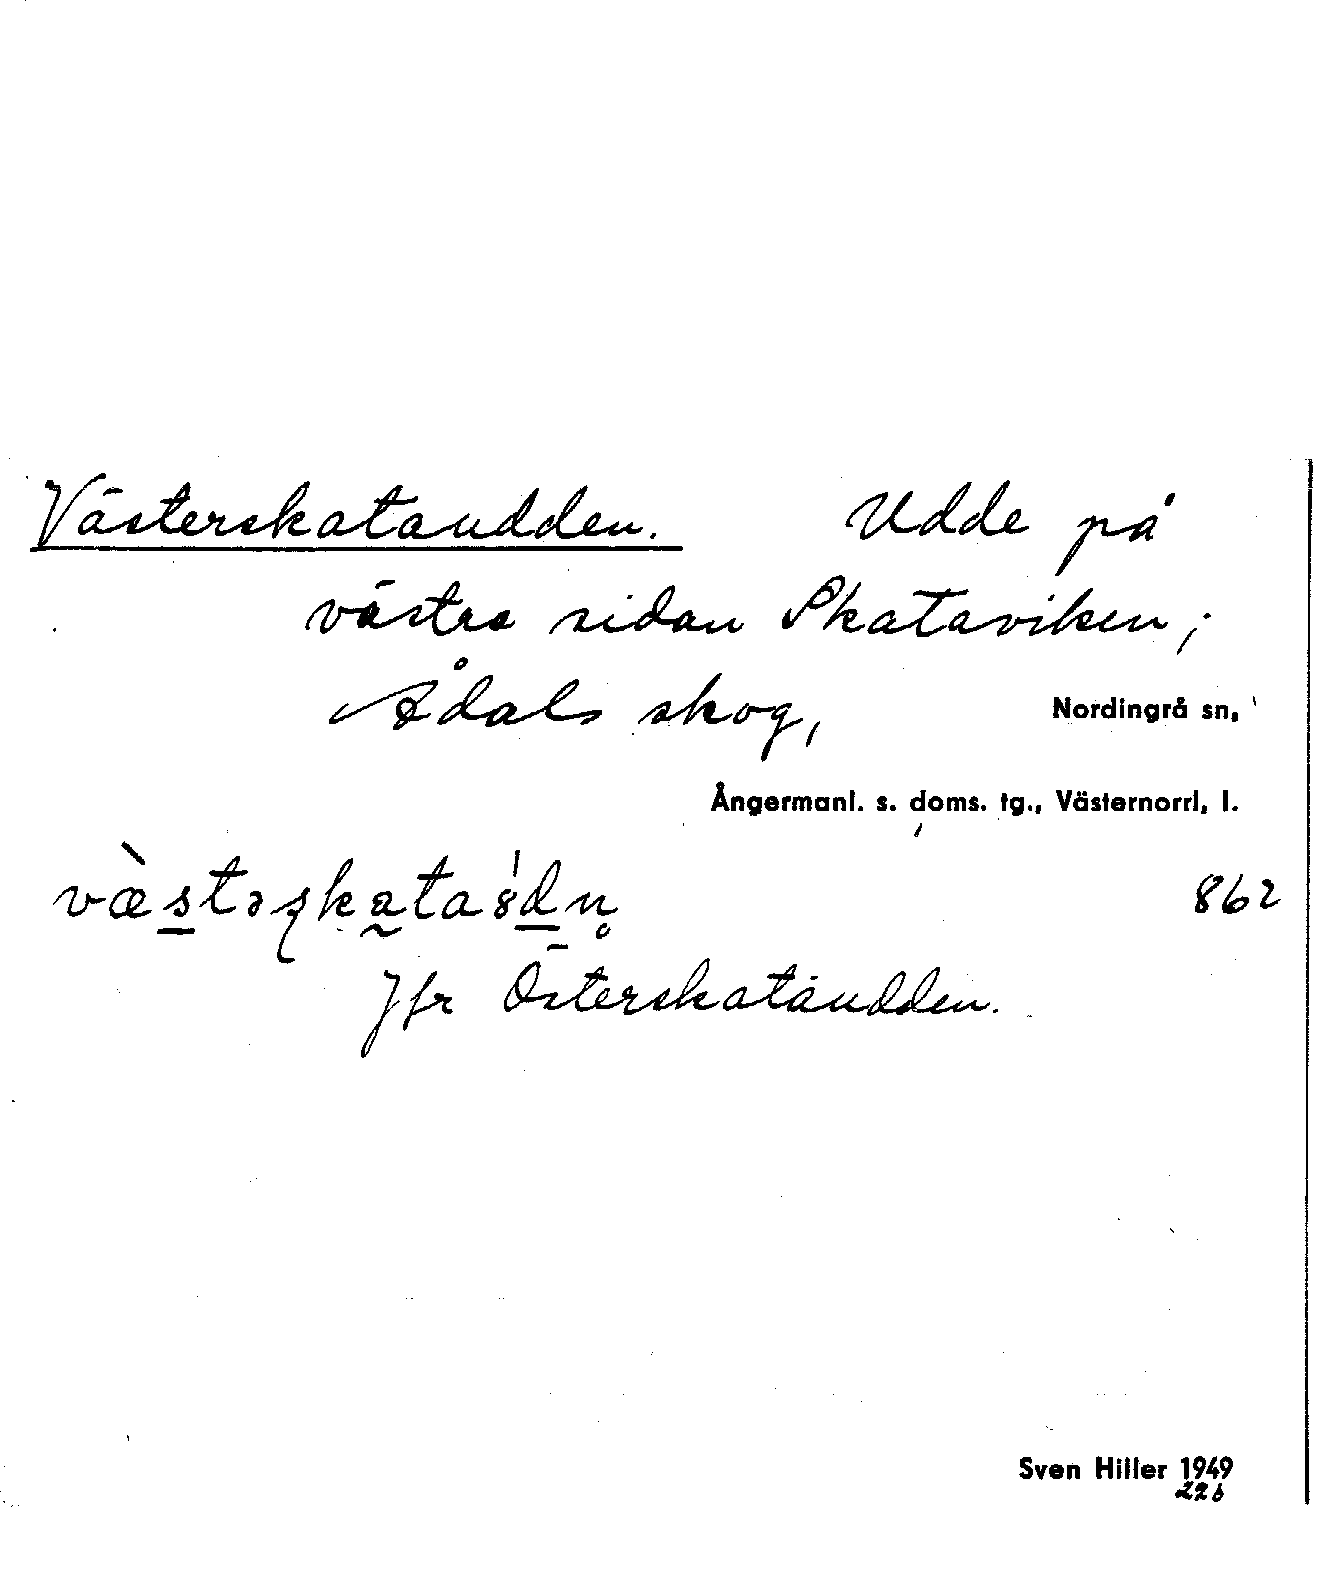 Västerskataudden. Udde på
västra sidan Skataviken;
Ådals skog, Nordingrå sn,
Ångermanl. s. doms. tg., Västernorrl. l.
862
Jfr Österskataudden.
Sven Hiller 1949
226